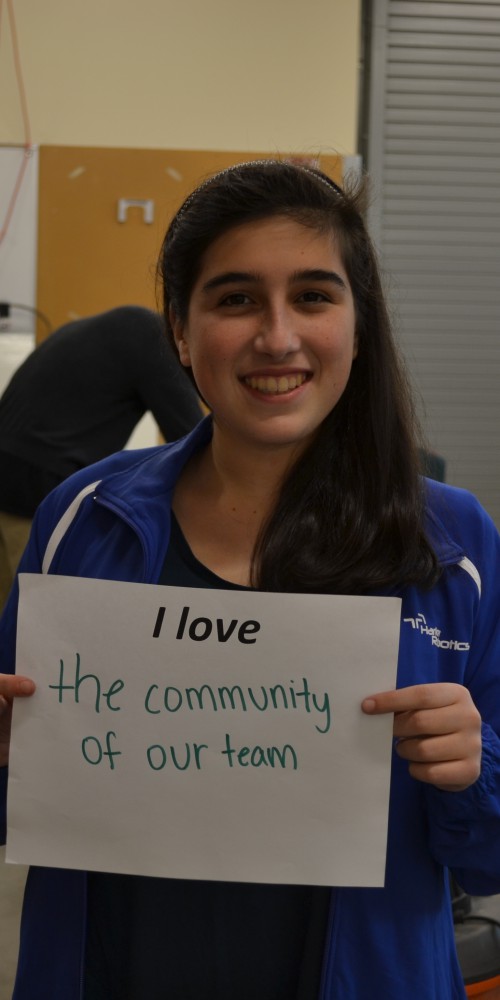 I love
the community
of our team
Robotics